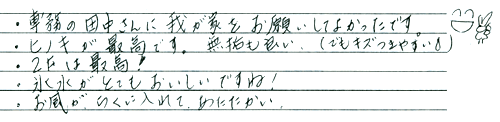 ・専務の田中さんに我が家をお願いしてよかったです。
・ヒノキが最高です。無垢も良い、(でもキズつきやすい!)
・2Fは最高!
・氷水がとてもおいしいですね!
・お風が らくに入れて、あたたかい。